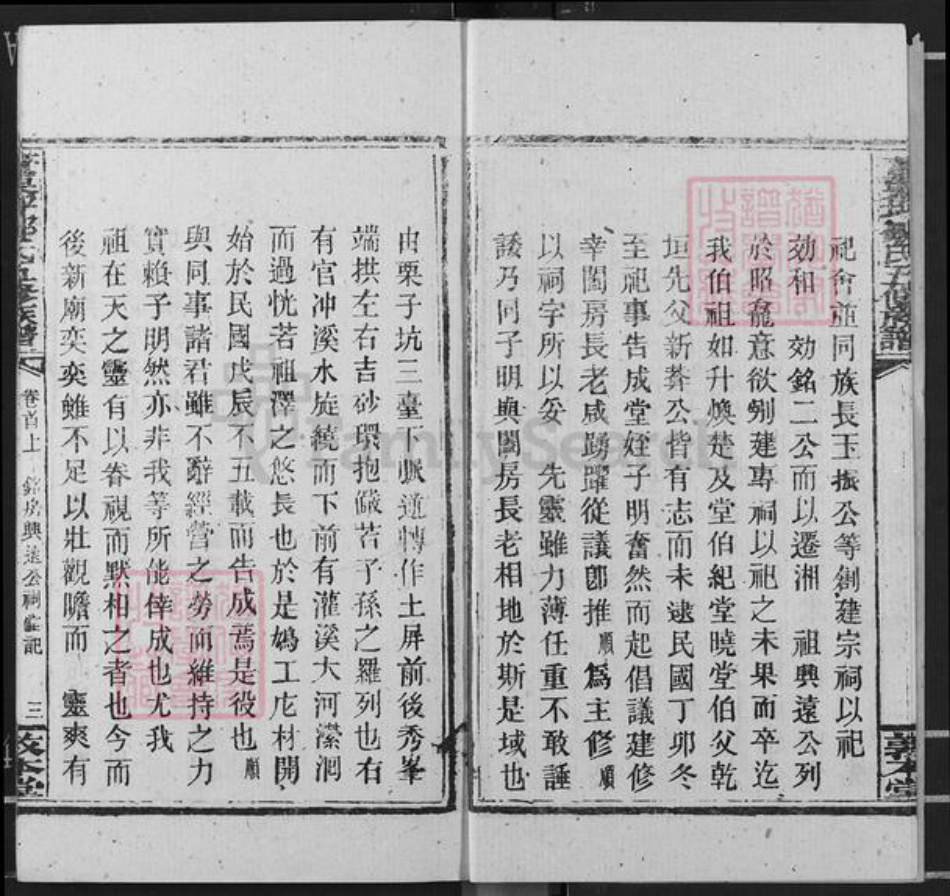 祀會並同族長玉振公等創建宗祠以祀
効和　効銘二公而以遷湘　祖興遠公列
於昭龕意欲剏建專祠以祀之未果而卒迄
我伯祖如升煥楚及堂伯紀堂曉堂伯父乾
垣先父新莽公皆有志而未逮民國丁卯冬
至祀事告成堂姪子明奮然而起倡議建修
幸闔房長老咸踴躍從議卽推順為主修順
以祠宇所以妥　先靈雖力薄任重不敢諈
諉乃同子明與闔房長老相地於斯是域也
由栗子坑三臺下脈逆轉作土屏前後秀峯
端拱左右吉砂環抱儼若子孫之羅列也右
有官冲溪水旋繞而下前有灌溪大河瀠洄
而過恍若祖澤之悠長也於是鳩工庀材開
始於民國戊辰不五載而告成焉是役也順
與同事諸君雖不辭經營之勞而維持之力
實賴子明然亦非我等所能倖成也尤我
祖在天之靈有以眷視而默相之者也今而
後新廟奕奕雖不足以壯觀瞻而　靈爽有
卷首上　銘房興遠公祠堂記　三
敦本堂
FamilySearch